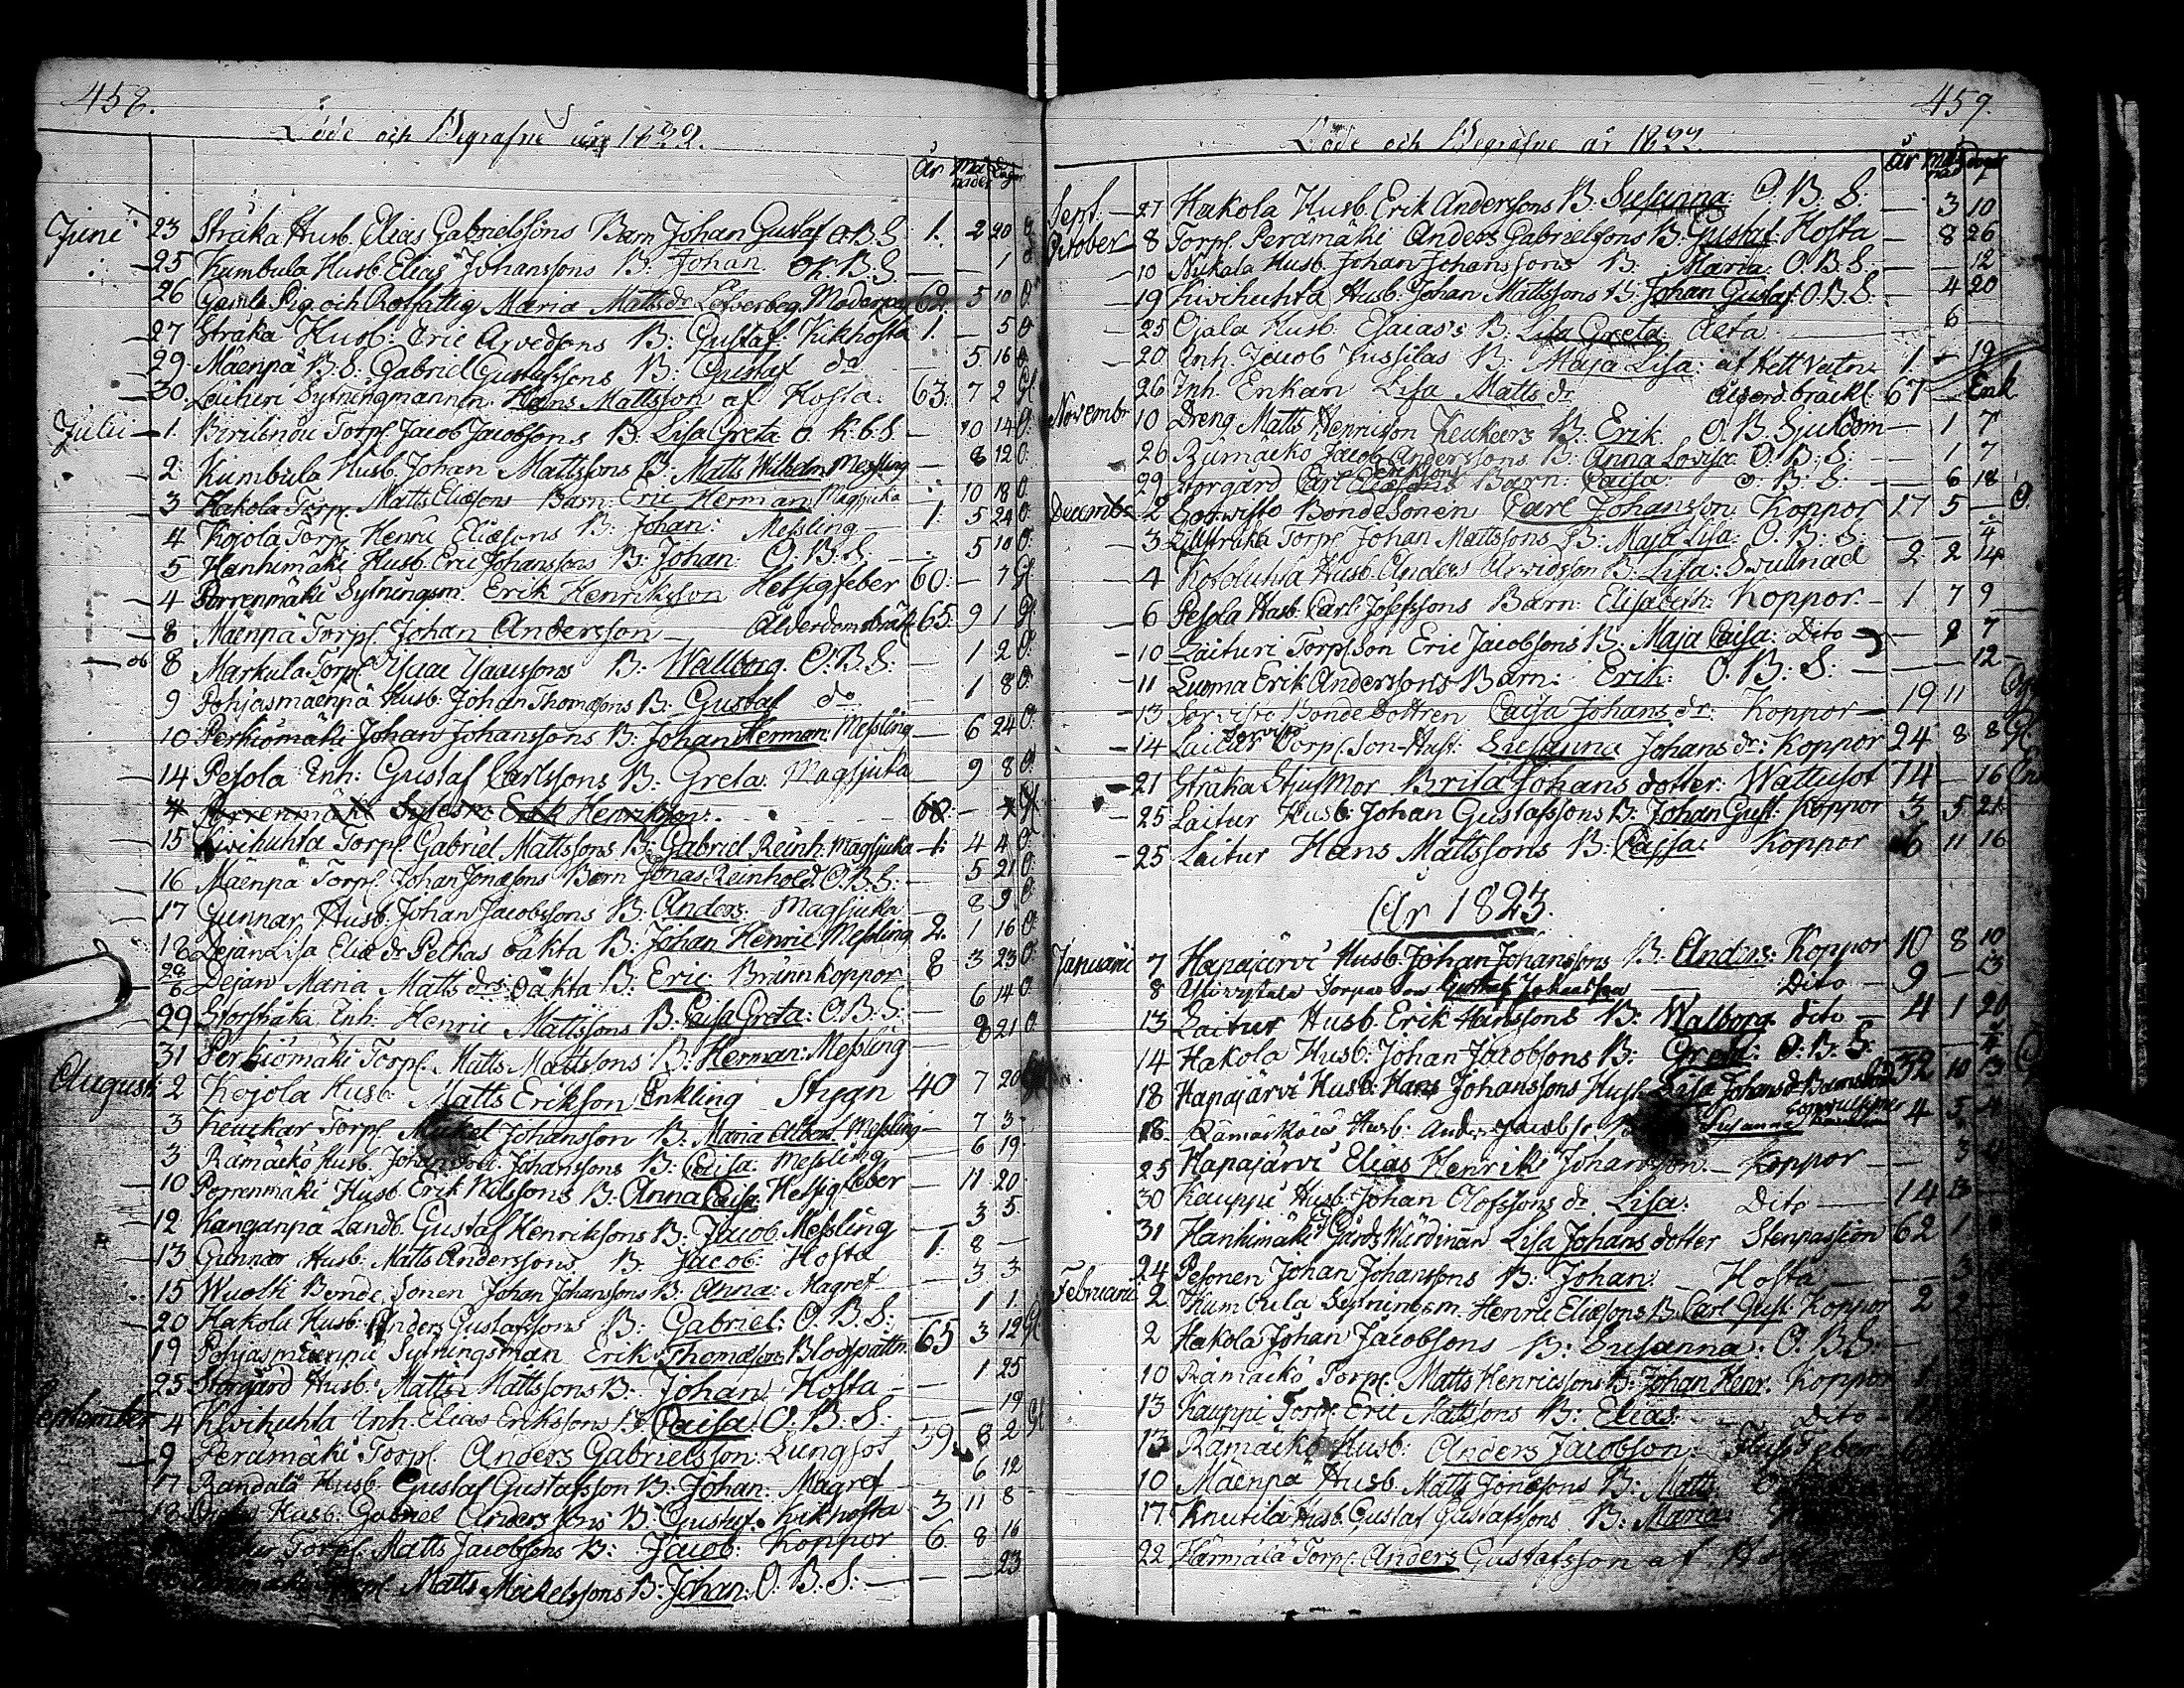 458.
Döde och Begrafne år 1822.
År Månader Dagar
Juni 23 Stråka Husb. Elias Gabrielssons Barn Johan Gustaf O.B.S. 1. 2 20
25 Kumbula Husb. Elias Johanssons B: Johan. Ok. B.S. — — 1
26 Gamla Pig. och Rotfattig Maria Mattsdr 62. 5 10 O.
27 Stråka Husb: Eric Arvedsons B: Gustaf: Kikhosta 1. — 5
29. Mäenpä B.S. Gabriel Gustafssons B: Gustaf do — 5. 16
30. Leituri Sytningmannen Hans Mattsson af Hosta. 63: 7 2 Gf
Julii 1. Torp. Jacob Jacobsons B. Lisa Greta O. K. B.S. — 10 14 O.
2. Kumbula Husb. Johan Mattssons B: Matts Wilhelm Messling — 8 12 O.
3 Hakola Torp. Matts Eliæsons Barn: Eric Herman: Magsjuka — 10 18 O.
4 Kojola Torp. Henric Eliæsons B: Johan: Messling — 1. 5 24 O.
5 Hanhimäki Husb. Eric Johanssons B: Johan: O. B.S. — 5 10 O.
4 Porrenmäki Sytningsm. Erik Henriksson Hetsigfeber 60: — 7 Gf.
8 Mäenpä Torp. Johan Andersson — Ålderdomsbräckl 65. 9 1 Gf.
8 Markula Torp. Isaac Isacssons B: Wallborg. O.B.S: — 1 2 O.
9 Pohjasmäenpä Husb. Johan Thomæsons B: Gustaf do — 1 8 O.
10 Perkiömäki Johan Johanssons B: Johan Herman: Messling — 6 24 O.
14 Pesola Enh: Gustaf Carlssons B: Greta: Magsjuka — 9 8 O.
4 Porrenmäki Sytn. Erik Henriksson. 60. — 7 Gf.
15 Kivihuhta Torp. Gabriel Mattssons B: Gabriel Reinh: Magsjuka 1: 4 4 O.
16 Mäenpä Torp. Johan Jonæsons Barn Jonas Reinhold. O.B.S: — 5 21 O.
17 Gunnar Husb. Johan Jacobssons B. Anders: Magsjuka — 8 9. O.
18 Dejan Lisa Eliædr Pelkas oäkta B: Johan Henric Messling 2. 1 16 O.
28/6 Dejan Maria Mattsdrs oäkta B: Eric Brännkoppor 8 3 23 O.
29 Storstråka Inh. Henric Mattssons B. Caisa Greta: O.B.S: — 6 14 O.
31 Perkiömäki Torp. Matts Mattssons B: Herman: Messling — 8 21 O.
August: 2 Kojola Husb: Matts Erikson Enkling Stygn 40 7 20
3 Keuckar Torp. Mickel Johansson B: Maria Albert. Messling — 7 3
3 Rämäckö Husb. Johan Johanssons B: Caisa: Messling — 6 19.
10 Porrenmäki Husb. Erik Nilssons B: Anna Caisa: Hetsig feber — 11 20
12 Kanganpä Landb. Gustaf Henrikssons B: Jacob: Messling — 3 5.
13 Gunnar Husb. Matts Anderssons B: Jacob: Hosta 1: 8 —
15 Wuolti Bonde Sonen Johan Johanssons B: Anna: Magref — 3 3
20 Hakola Husb: Anders Gustafssons B: Gabriel: O.B.S: — 1 1.
19 Pohjasmäenpä Sytningsman Erik Thomæson: Blodspottn: 65 3 12 Gf
25 Storgård Husb: Matts Mattssons B: Johan Hosta — 1 25
September 4 Kivihuhta Inh. Elias Erikssons B: Caisa: O. B. S: — — 19
9 Perämäki Torp. Anders Gabrielsson: Lungsot 39. 8 2 Gf
17 Randala Husb: Gustaf Gustafsson B: Johan: Magref — 6 12
18 Husb: Gabriel Anderssons B: Gustaf: Kikhosta 3 11 8
Torp. Matts Jacobssons B: Jacob: Koppor 6 8 16
Torp. Matts Mickelssons B: Johan: O. B. S: — — — 23
459.
Döde och Begrafne år 1822.
År Månad dagar
Sept. 27 Hakola Husb. Erik Anderssons B: Susanna: O. B. S: — 3 10
October 8 Torp. Perämäki Anders Gabrielssons B: Gustaf: Hosta — 8 26
10 Nikala Husb. Johan Johanssons B: Maria: O.B.S: — — 12
19 Kivihuhta Husb: Johan Mattssons B: Johan Gustaf: O.B.S: — 4 20
25 Ojala Husb. Esaias's B: Lisa Greta: — 6 —
20 Inh. Jacob Jussilas B: Maja Lisa: af Hett Vatn: 1. — 19
26 Inh. Enkan Lisa Mattsdr Ålderd. bräckl: 67 — Enk
Novembr 10 Dreng Matts Henriksson Keukers B: Erik: O. B. Sjukdom — 1 7
26 Rämäckö Jacob Anderssons B: Anna Lovisa: O: B: S: — 1 7
29 Storgård Carl Eriksons Barn: Caisa: O: B: S: — 6 18
Decembr 2 Sorvisto Bondesonen Carl Johansson: Koppor 17 5 — O.
3 Lillstråka Torp. Johan Mattssons B: Maja Lisa: O. B: S: — — ¼
4 Kololuhta Husb. Anders Arvidsson B: Lisa: Swullnad 2. 2 14
6 Pesola Husb. Carl Josefssons Barn: Elisabeth: Koppor. — 1 7 9
10 Laituri Torp. Son Eric Jacobsons B: Maja Caisa: Dito — 8 7
11 Luoma Erik Anderssons Barn: Erik: O. B: S: — — — 12
13 Sorvisto Bonde Dottren Caisa Johansdr: Koppor — 19 11
14 Laitur Torp. Son Hust: Susanna Johansdr: Koppor 24 8 8 Gf.
21 Stråka StjufMor Brita Johans dotter: Wattusot 74 — 16 Enk
25 Laitur Husb: Johan Gustafssons B: Johan Gust: Koppor 3 5 21
25 Laitur Hans Mattssons B: Caisa: Koppor 6 11 16
År 1823.
Januarii 7 Hapajärvi Husb. Johan Johanssons B: Anders: Koppor 10 8 10
8 Torpare son Gustaf Johansson — Dito — 9 — 13
13 Laitur Husb. Erik Hanssons B: Walborg. dito — 4 1 20
14 Hakola Husb: Johan Jacobssons B: Greta: O: B: S: — — ¼
18 Hapajärvi Husb: Hans Johanssons Hust: Lisa Johansdr Barnsbörd 32 10 13
18. Rämäckö Husb: Anders Susanna Convulsioner 4 5
25 Hapajärvi Elias Henrik Johansson — Koppor — — 3
30 Kauppi Husb. Johan Olofssons dr Lisa: Dito — 14 13
31 Hanhimäki Gårds Wärdinnan Lisa Johans dotter Stenpassion 62 1
24 Pesonen Johan Johanssons B: Johan: — Hosta — — 3
Februarii 2 Kumbula Sytningsm. Henric Eliæsons B. Carl Gust: Koppor 2 2
2 Hakola Johan Jacobssons B: Susanna: O. B.S: —
10 Rämäckö Torp. Matts Henricssons B: Johan Henr: Koppor 1
13 Kauppi Torp. Eric Mattssons B: Elias: — Dito —
13 Rämäckö Husb: Anders Jacobson: Feber
10 Mäenpä Husb. Matts Jonæsons B: Matts
17 Knutila Husb: Gustaf Gustafssons B: Maria:
22 Härmälä Torp. Anders Gustafsson af